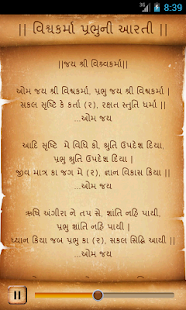 8:39
|| વિશ્વકર્મા પ્રભુની આરતી ||
||જય શ્રી વિશ્વકર્મા||
ઓમ જય શ્રી વિશ્વકર્મા, પ્રભુ જય શ્રી વિશ્વકર્મા |
સકલ સૃષ્ટિ કે કર્તા (૨), રક્ષાત સ્તુતિ ધર્મા ||
...ઓમ જય
આદિ સૃષ્ટિ મે વિધિ કો, શ્રુતિ ઉપદેશ દિયા,
પ્રભુ શ્રુતિ ઉપદેશ દિયા |
જીવ માત્ર કા જગ મે (૨), જ્ઞાન વિકાસ કિયા ||
...ઓમ જય
ઋષિ અંગીરા ને તપ સે, શાતિ નહિ પાયી,
પ્રભુ શાંતિ નહિ પાયી |
ધ્યાન કિયા જબ પ્રભુ કા (૨), સકલ સિદ્ધિ આયી ||
...ઓમ જય